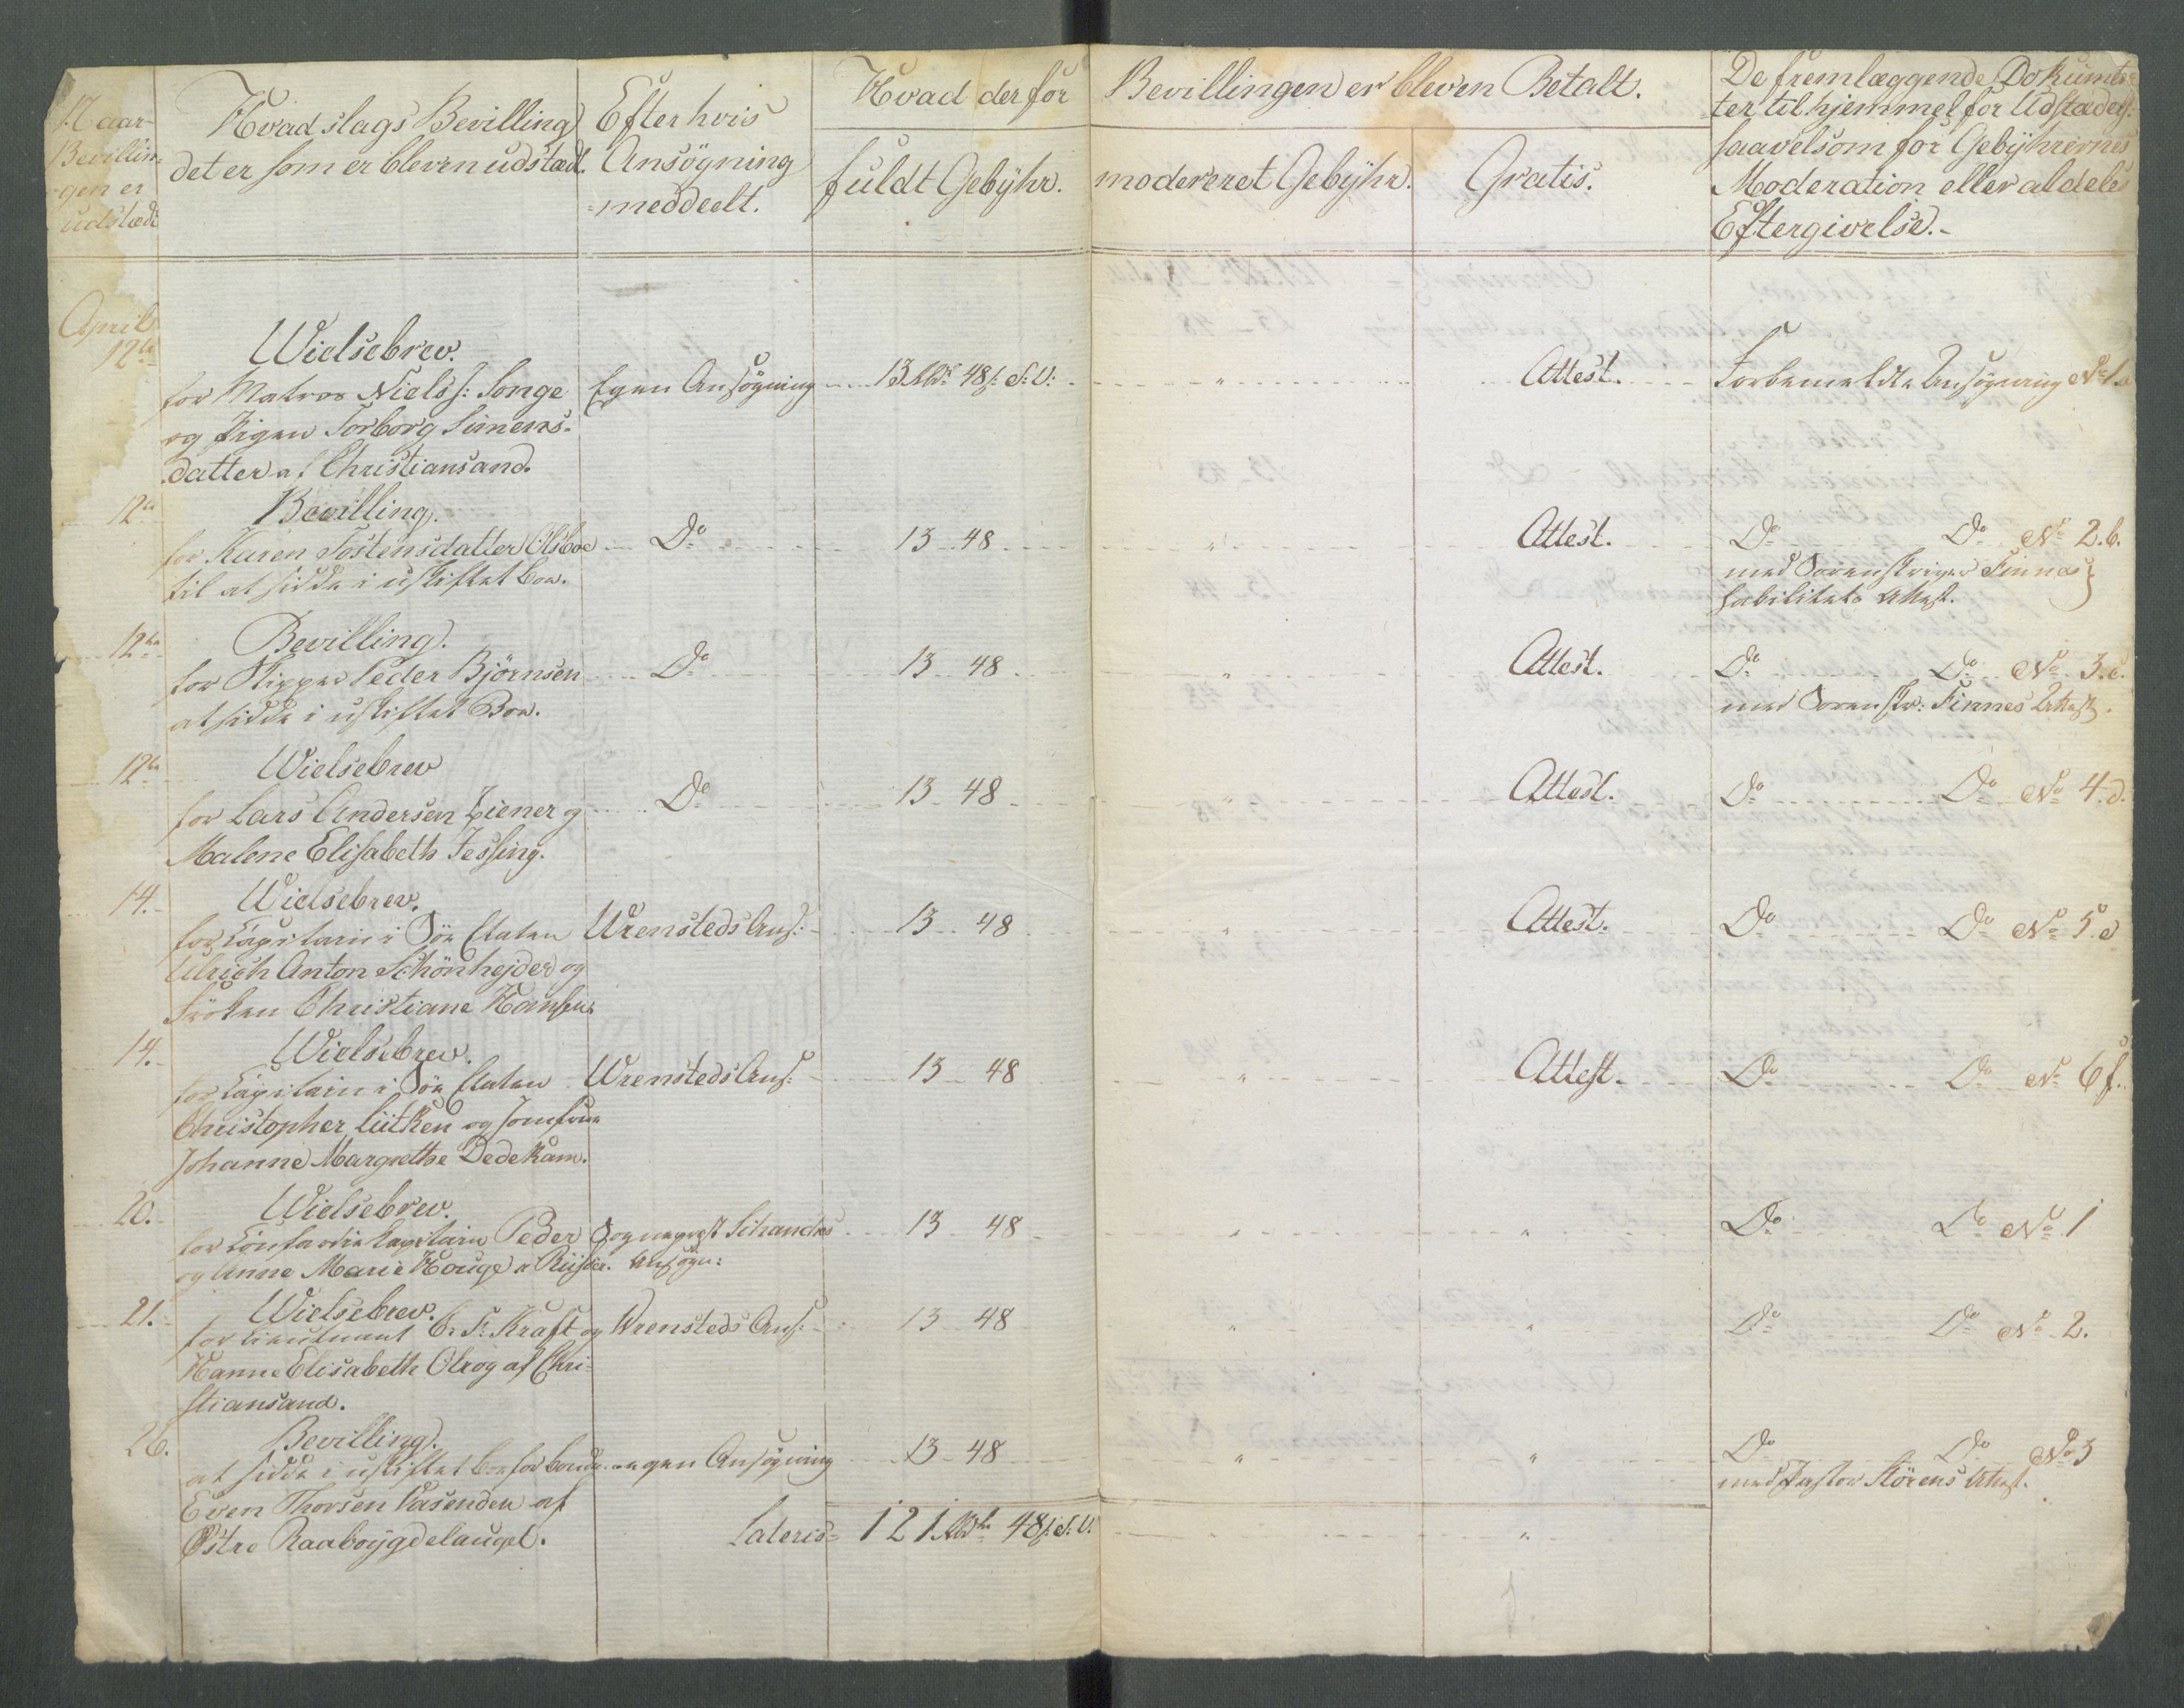 Naar
Bevillin-
gen er
udstædt
Hvad slags Bevilling
det er som er bleven udstæd.
Efter hvis
Ansögning
meddeelt.
Hvad der for Bevillingen er bleven Betalt.
fuldt Gebÿhr. modereret Gebÿhr. Gratis.
De fremlæggende Dokumen-
ter til hjemmel for Udstædels:
saavelsom for Gebÿhrernes
Moderation eller aldeles
Eftergivelse.-
April
12te Wielsebrev.
for Matros Niels J: Songe Egen Ansögning 13 Rbd 48 s: S: V: " Attest. Forbemeldte Ansögning No 1.a
og Pigen Torborg Simens-
datter af Christiansand.
12te Bevilling.
for Karen Tostensdatter Olsboe Do 13 48 " Attest. Do Do No 2.b.
til at sidde i uskiftet boe. med Sorenskriver Finnes
habilitets Attest.
12te Bevilling.
for Skipper Peder Björnsen Do 13 48 " Attest. Do Do No 3.c.
at sidde i uskiftet Boe. med Sorenskr: Finnes Attest.
12te Wielsebrev
for Lars Andersen Ziener og Do 13 48 " Attest. Do Do No 4.d.
Malene Elisabeth Jessing.
14. Wielsebrev.
for Capitain i Söe Etaten Wrensteds Ans: 13 48 " Attest. Do Do No 5.e
Ulrich Anton Schönhejder og
Fröken Christiane Hansen
14. Wielsebrev.
for Capitain i Söe Etaten Wrensteds Ans: 13 48 " Attest. Do Do No 6 f.
Christopher Lütken og Jomfrue
Johanne Margrethe Dedekam.
20. Wielsebrev.
for Coufardie Capitain Peder Sognepræst Schanches 13 48 " " Do Do No 1
og Anne Marie Houge a Riisöer. Ansögn:
21. Wielsebrev.
for Lieutnant C. F: Kraft og Wrensteds Ans: 13 48 " " Do Do No 2.
Hanne Elisabeth Olrog af Chri-
stiansand.
26. Bevilling.
at sidde i uskiftet boe for bonde egen Ansögning 13 48 " " Do Do No 3
Even Thorsen Vasenden af med Pastor Störens Attest.
Østre Raaboÿgdelauget. Lateris 121 Rbd 48 s: S: V. "